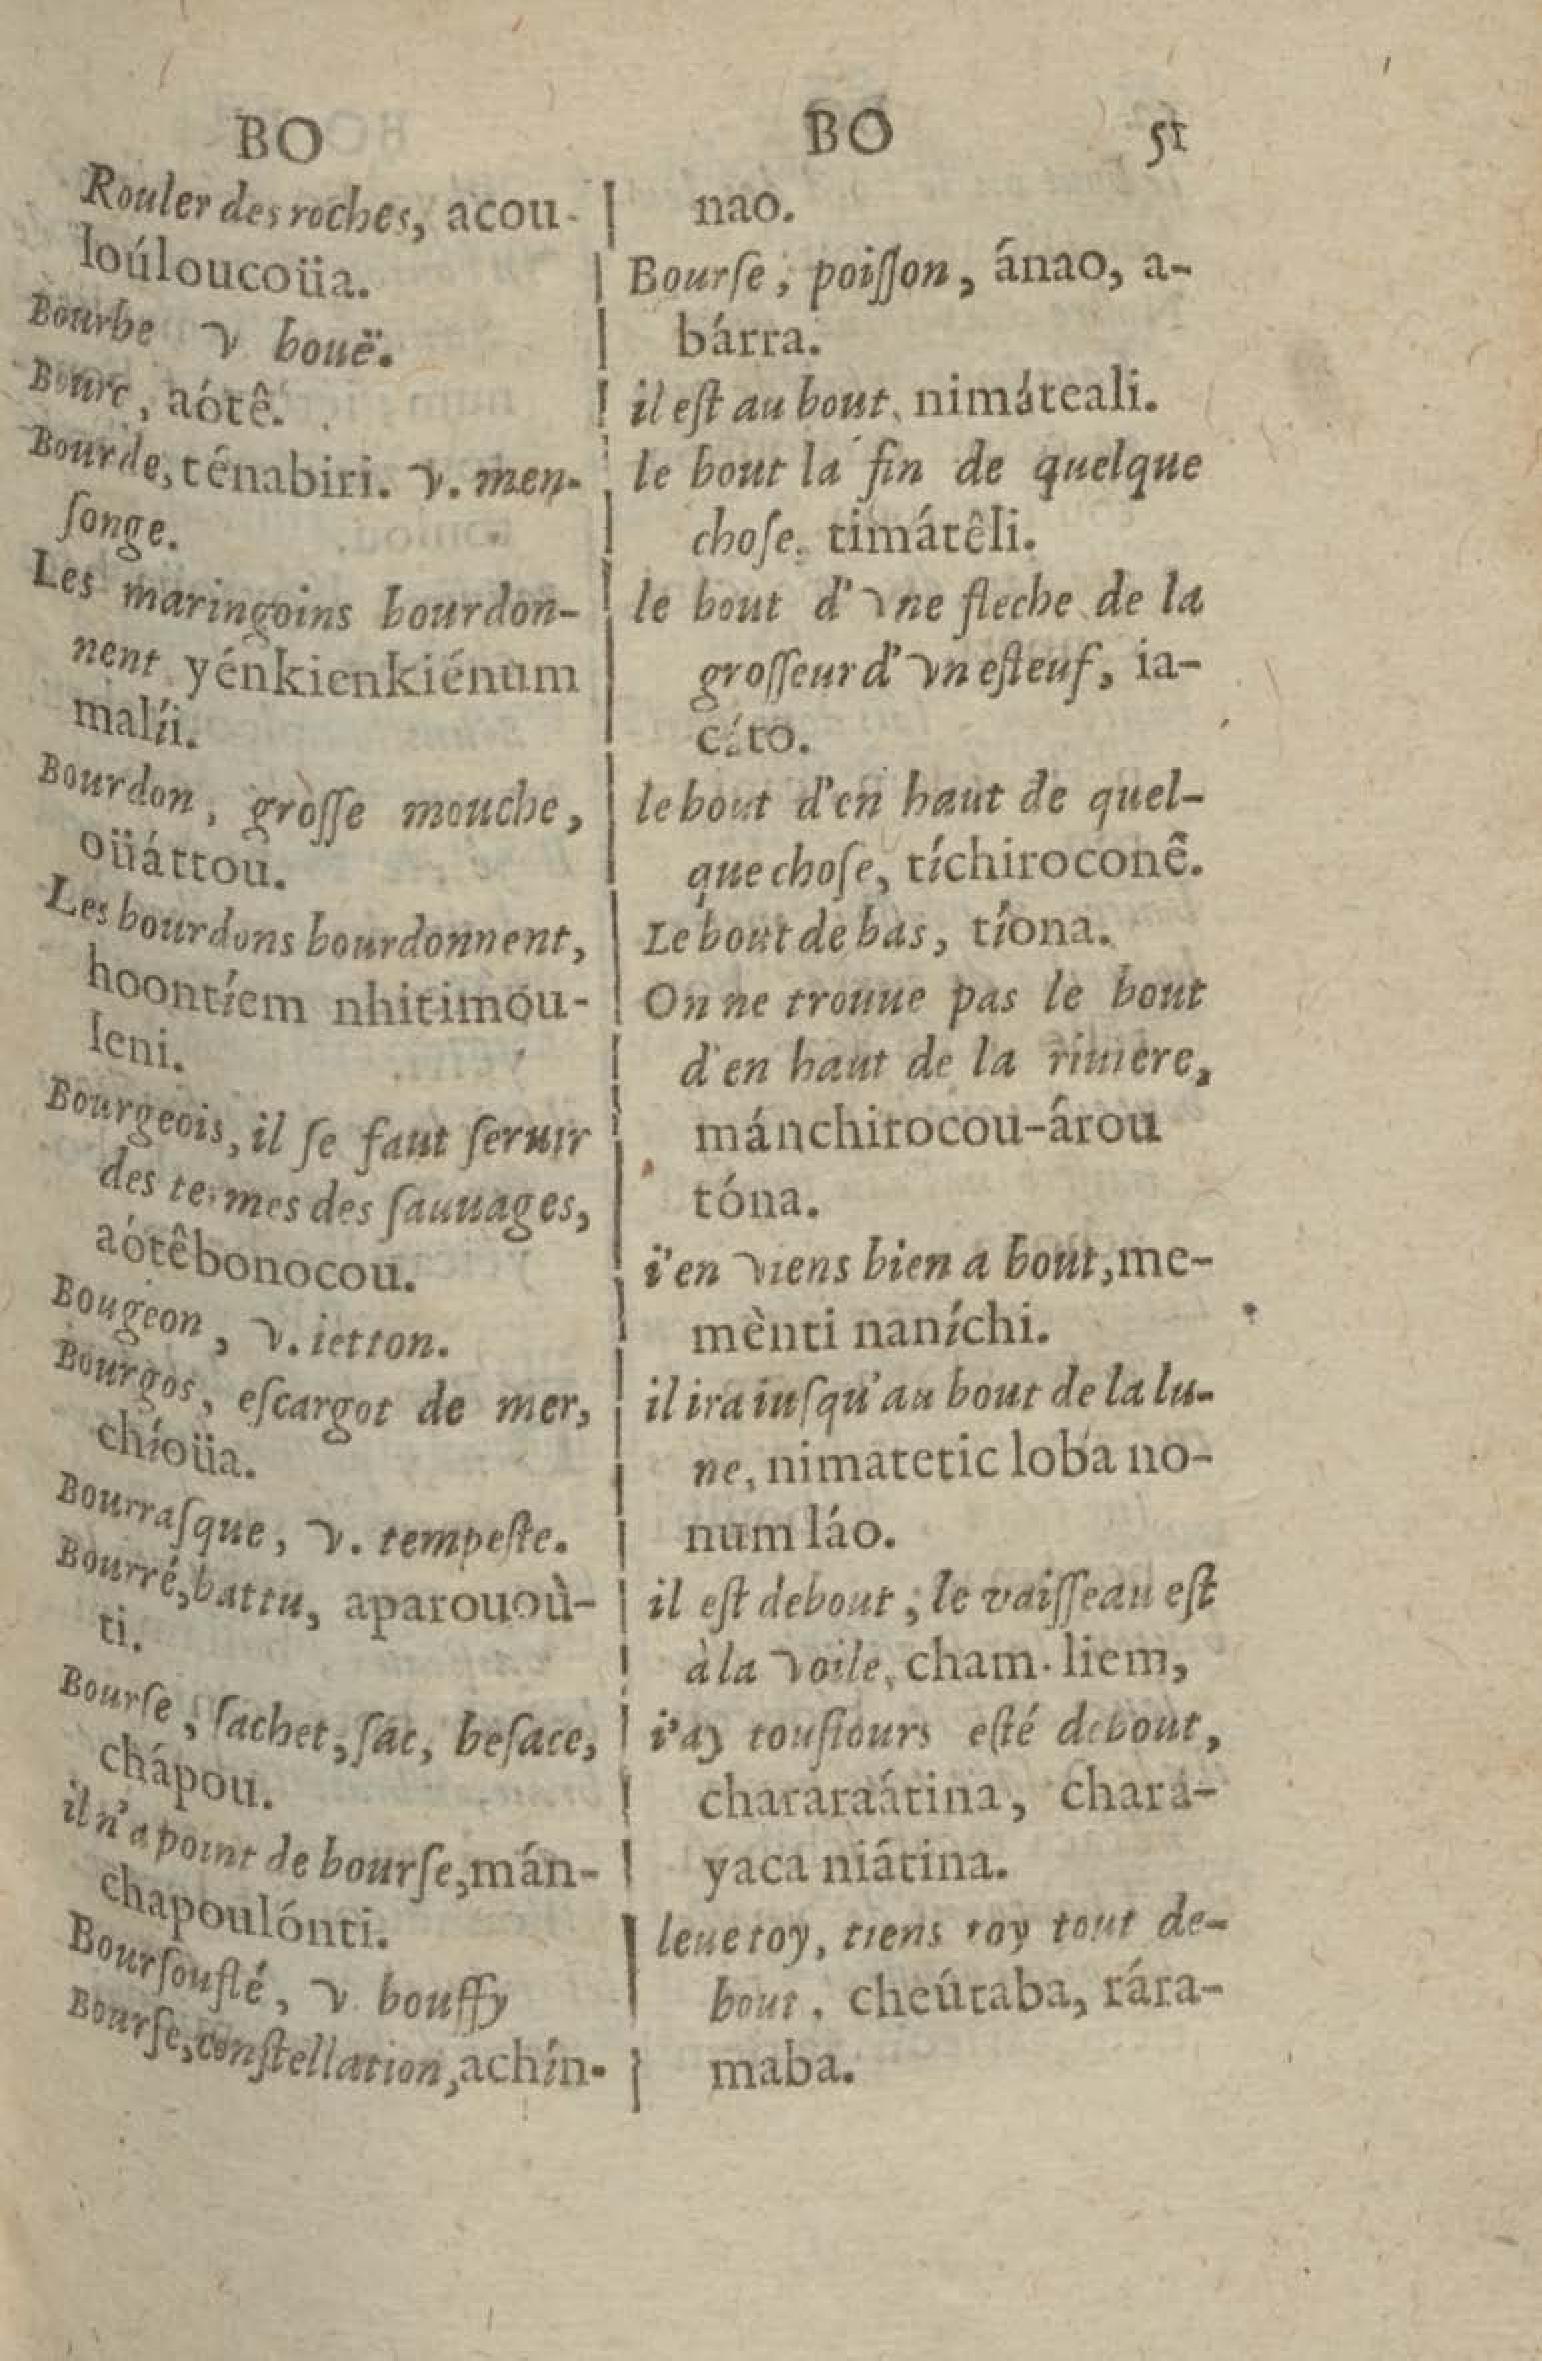 BO
Rouler des roches, acou-
loúloucoüa.
Bourbe v bouë.
Bourc, aótê.
Bourde, ténabiri. v. men-
ſonge.
Les maringoins bourdon-
nent yénkienkiénum
malíi.
Bourdon, groſſe mouche,
oüáttou.
Les bourdons bourdonnent,
hoontíem nhitimóu-
leni.
Bourgeois, il ſe faut ſeruir
des termes des ſauuages,
aótêbonocou.
Bougeon, v. ietton.
Bourgos, eſcargot de mer,
chíoüa.
Bourraſque, v. tempeſte.
Bourré, battu, aparouoù-
ti.
Bourſe, ſachet, ſac, beſace,
chápou.
il n'a point de bourſe, mán-
chapoulónti.
Bourſouflé, v bouffy
Bourſe, conſtellation, achín-
BO 51
nao.
Bourſe, poiſſon, ánao, a-
bárra.
il eſt au bout, nimáteali.
le bout la fin de quelque
choſe, timátêli.
le bout d'vne fleche de la
groſſeur d'vn eſteuf, ia-
cáto.
le bout d'en haut de quel-
que choſe, tíchiroconê.
Le bout de bas, tíona.
On ne trouue pas le bout
d'en haut de la riuiere,
mánchirocou-árou
tóna.
i'en viens bien a bout, me-
mènti naníchi.
il ira iuſqu'au bout de la lu-
ne, nimatetic loba no-
num láo.
il eſt debout, le vaiſſeau eſt
à la voile, cham. liem,
i'ay touſiours eſté debout,
chararaátina, chara-
yaca niátina.
leue toy, tiens toy tout de-
bout, cheútaba, rára-
maba.